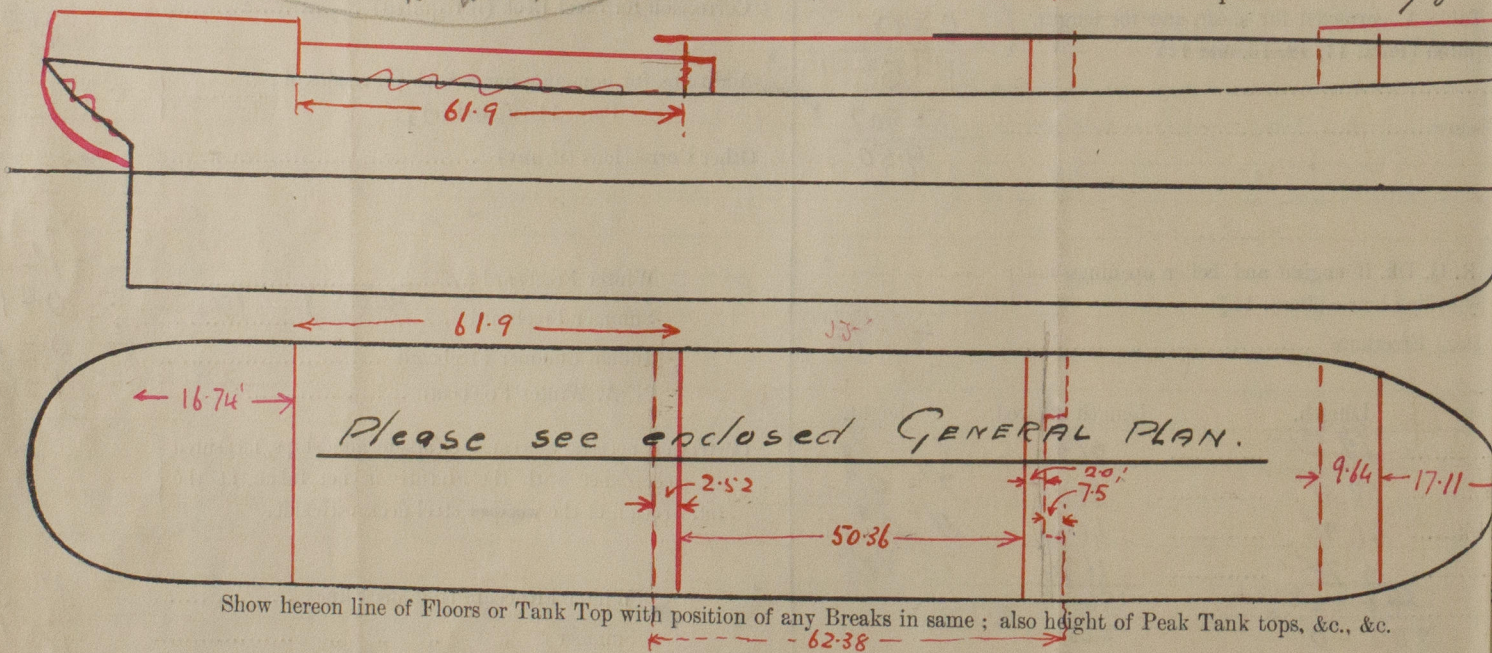 61.9
61.9
16.74'
Please see enclosed GENERAL PLAN.
2.52
2.0'
7.5
9.64
17.11
50.36
Show hereon line of Floors or Tank Top with position of any Breaks in same ; also height of Peak Tank tops, &c., &c.
62.38